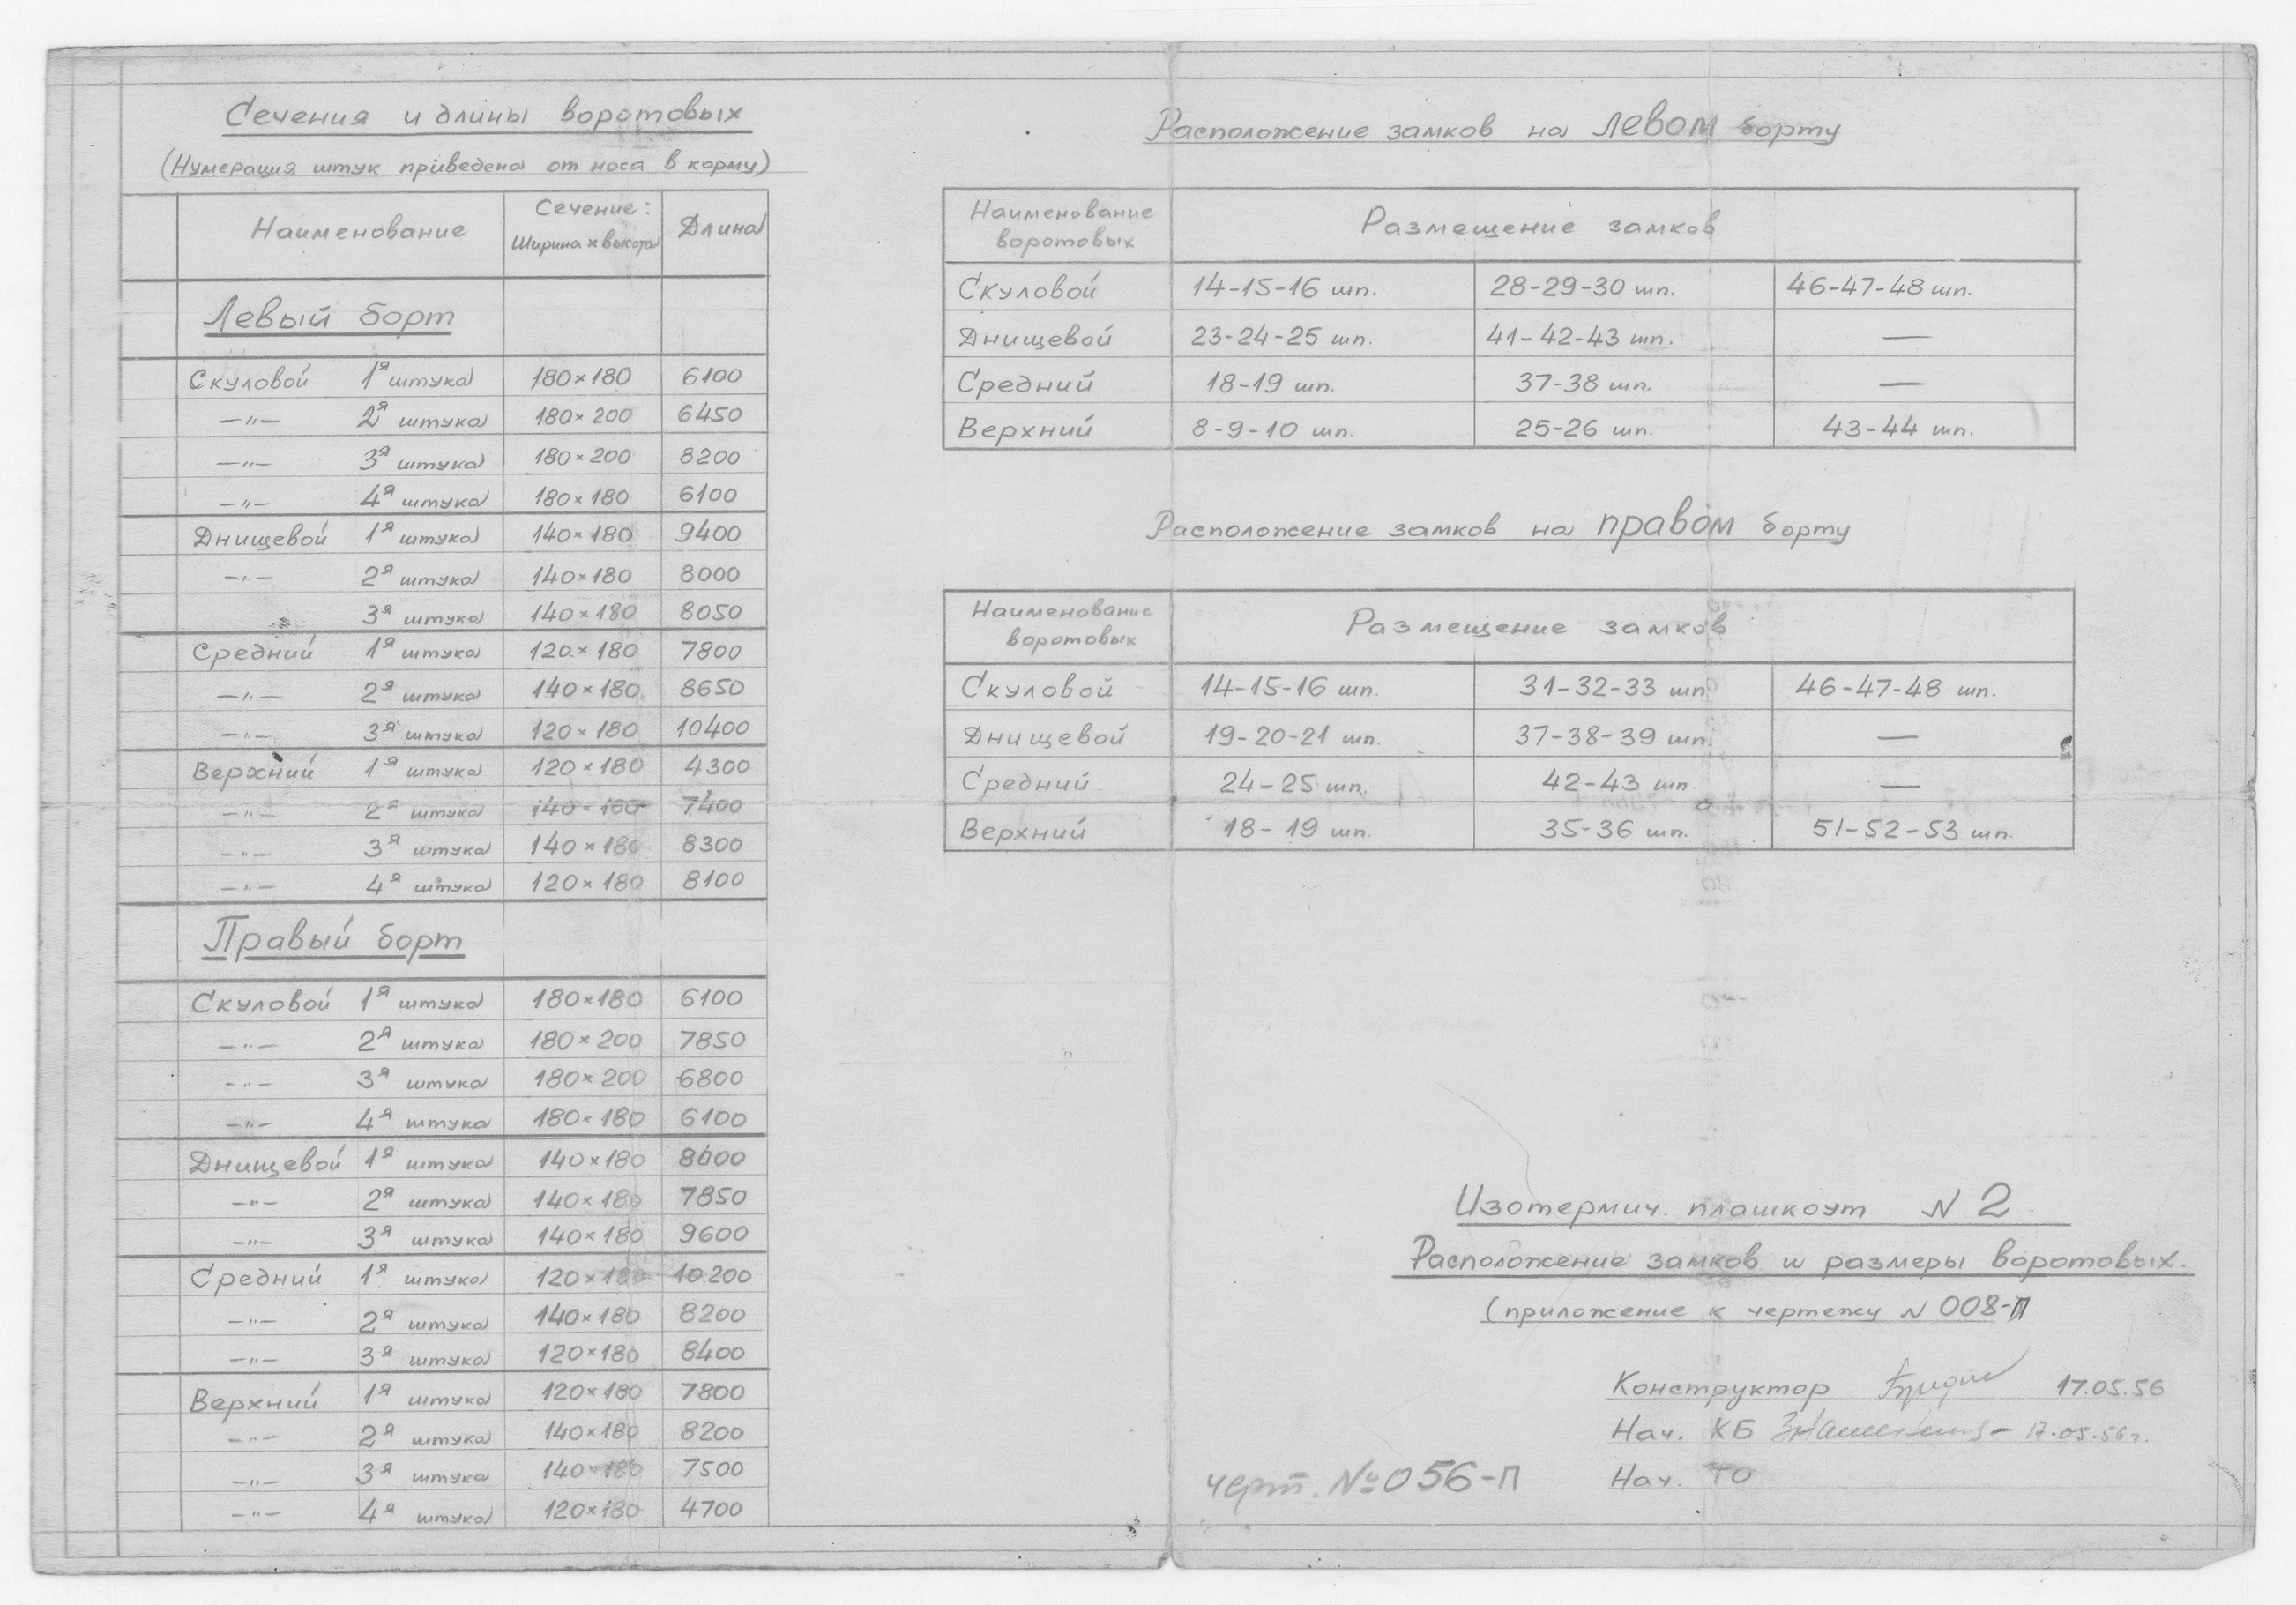 Сечения и длины воротовых
(Нумерация штук приведена от носа в корму)
Наименование Сечение: Ширина × высота Длина
Левый борт
Скуловой 1я штука 180×180 6100
—"— 2я штука 180×200 6450
—"— 3я штука 180×200 8200
—"— 4я штука 180×180 6100
Днищевой 1я штука 140×180 9400
—"— 2я штука 140×180 8000
3я штука 140×180 8050
Средний 1я штука 120×180 7800
—"— 2я штука 140×180 8650
—"— 3я штука 120×180 10400
Верхний 1я штука 120×180 4300
—"— 2я штука 7400
—"— 3я штука 140×180 8300
—"— 4я штука 120×180 8100
Правый борт
Скуловой 1я штука 180×180 6100
—"— 2я штука 180×200 7850
—"— 3я штука 180×200 6800
—"— 4я штука 180×180 6100
Днищевой 1я штука 140×180 8000
—"— 2я штука 140×180 7850
—"— 3я штука 140×180 9600
Средний 1я штука 120×180 10200
—"— 2я штука 140×180 8200
—"— 3я штука 120×180 8400
Верхний 1я штука 120×180 7800
—"— 2я штука 140×180 8200
—"— 3я штука 140×180 7500
—"— 4я штука 120×180 4700
Расположение замков на левом борту
Наименование воротовых Размещение замков
Скуловой 14-15-16 шп. 28-29-30 шп. 46-47-48 шп.
Днищевой 23-24-25 шп. 41-42-43 шп. —
Средний 18-19 шп. 37-38 шп. —
Верхний 8-9-10 шп. 25-26 шп. 43-44 шп.
Расположение замков на правом борту
Наименование воротовых Размещение замков
Скуловой 14-15-16 шп. 31-32-33 шп. 46-47-48 шп.
Днищевой 19-20-21 шп. 37-38-39 шп. —
Средний 24-25 шп. 42-43 шп. —
Верхний 18-19 шп. 35-36 шп. 51-52-53 шп.
Изотермич. плашкоут N 2
Расположение замков и размеры воротовых.
(приложение к чертежу N 008-П
Конструктор 17.05.56
Нач. КБ 17.05.56г.
Нач. ТО
черт. №056-П